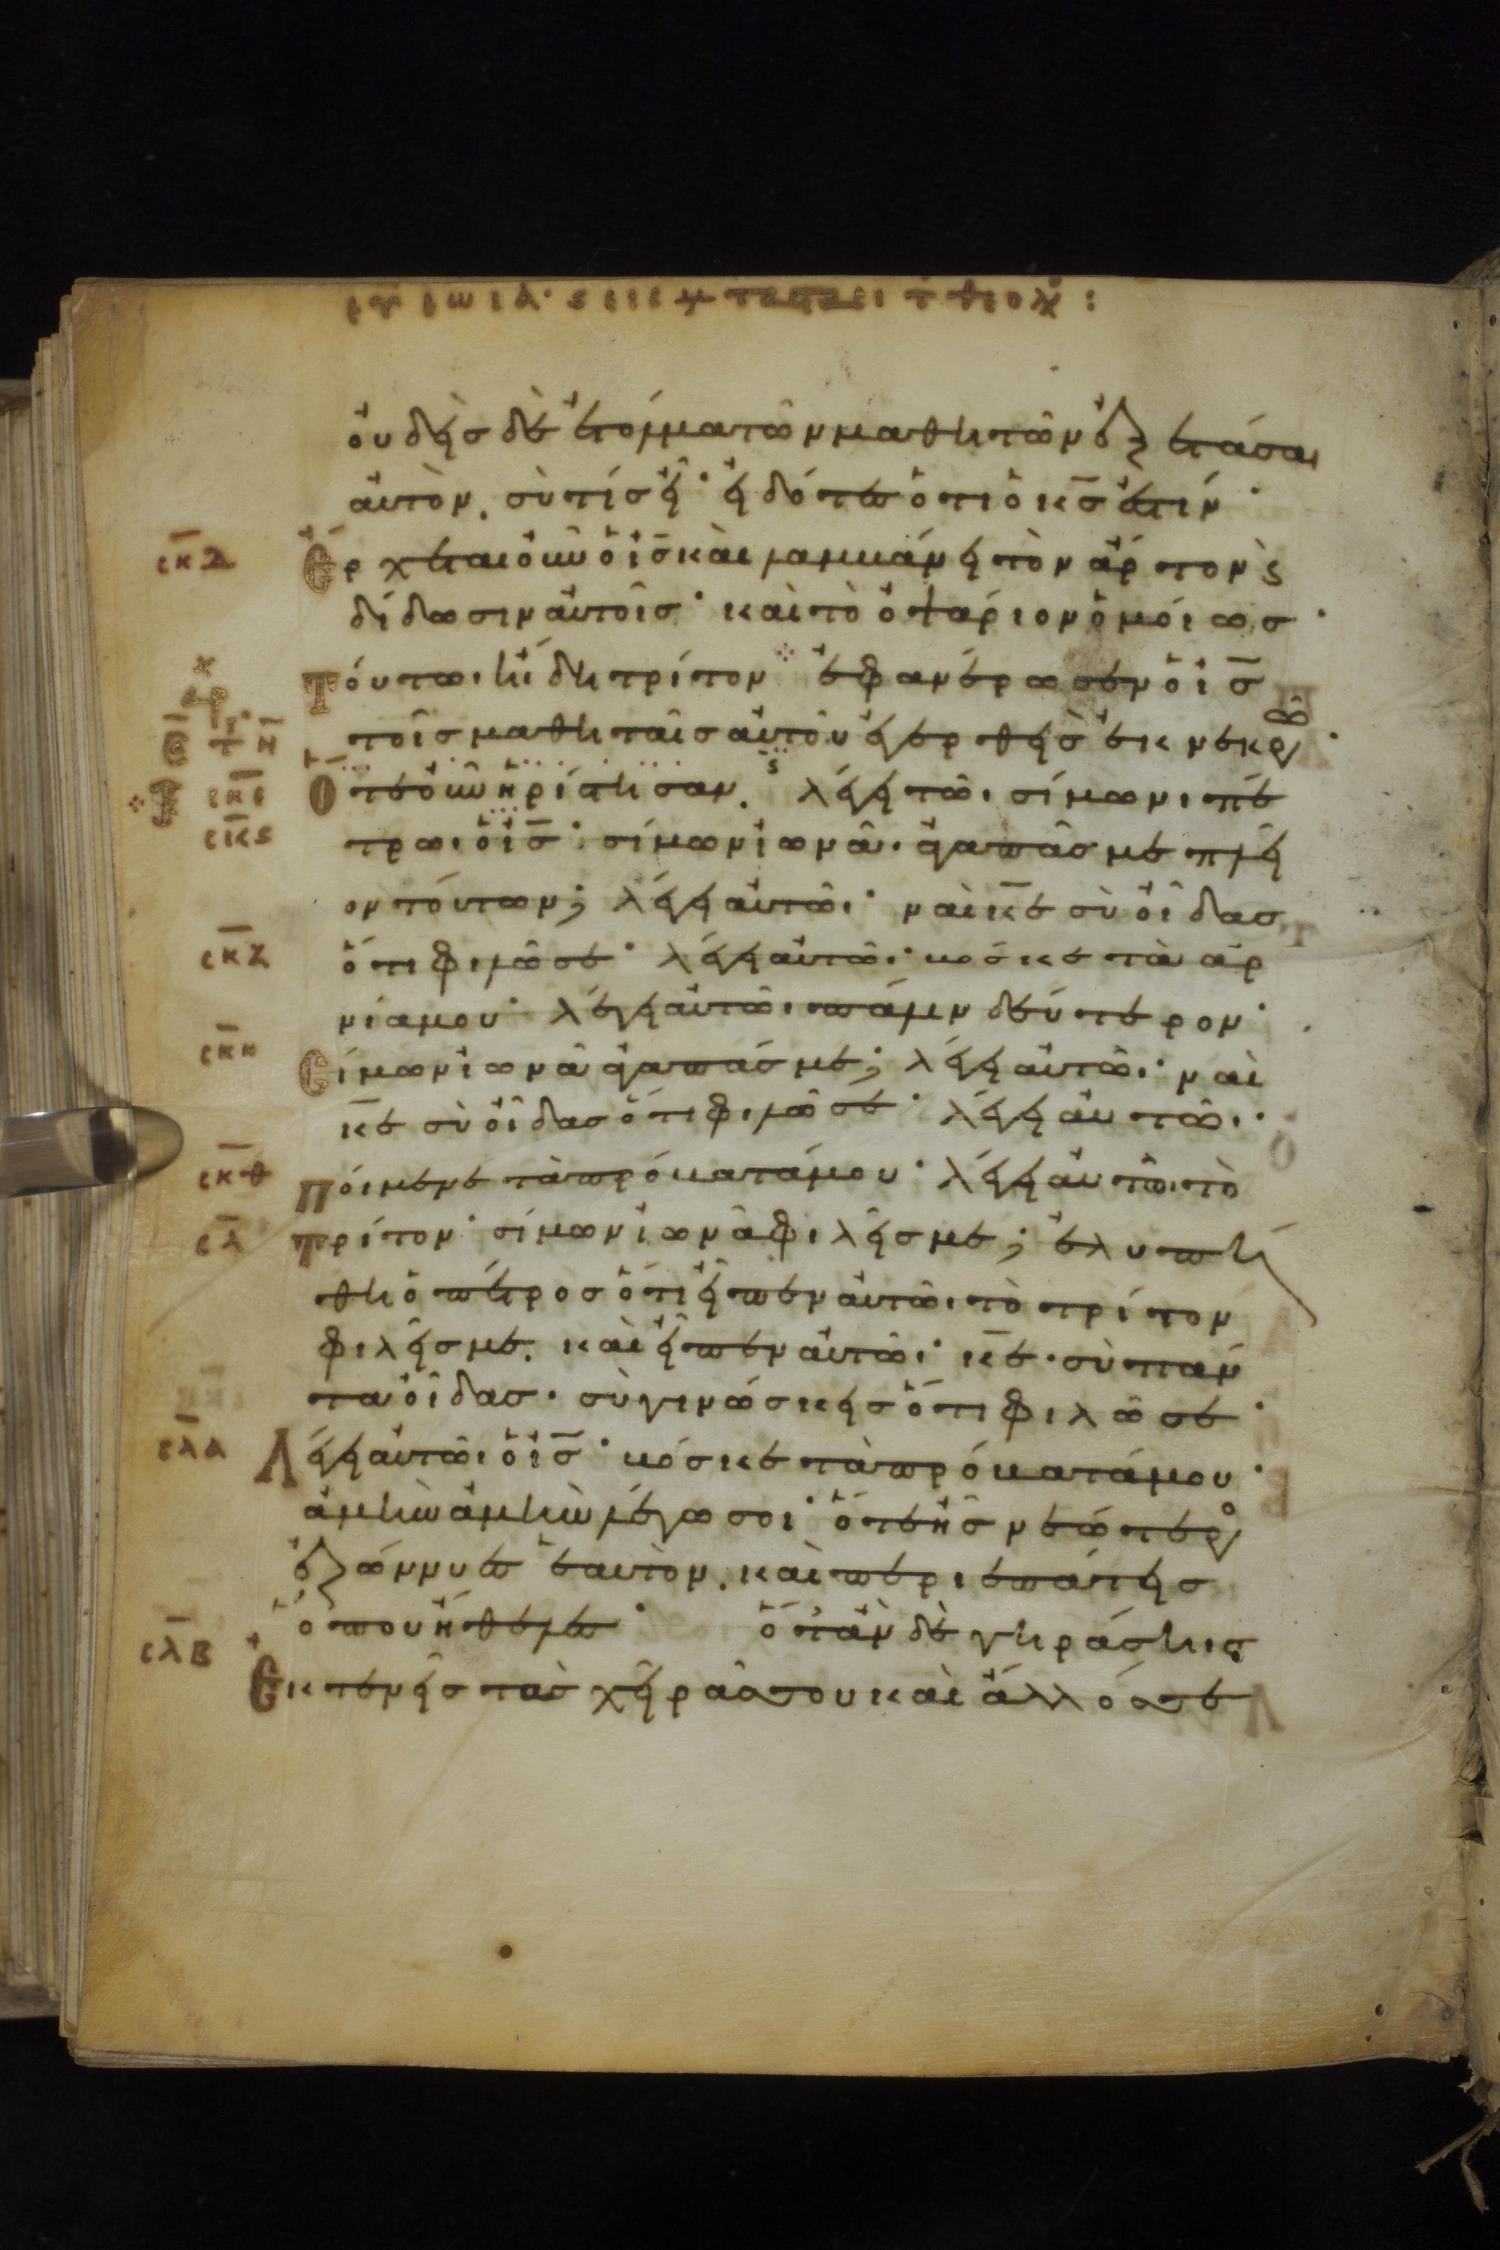 οὐδεὶσ δὲ ἐτόλμα τῶν μαθητῶν ἐξετάσαι
ἀυτὸν. σὺ τίσ εἶ· εἰδότεσ ὅτι ὁ κ̅σ̅ ἐστίν·
ε̅κ̅δ̅ Ἔρχεται ὁῦν ὁ ι̅σ̅ καὶ λαμβάνει τὸν ἄρτον ϗ
δίδωσιν ἀυτοῖσ· καὶ τὸ ὀψάριον ὁμόίωσ·
Τόυτωι ἤδη τρίτον ἐφανέρωσεν ὁ ι̅σ̅
τοῖσ μαθηταῖσ ἀυτοῦ ἐγερθεὶσ ἐκ νεκρῶ·
ε̅κ̅ε̅ Ὅτε ὀῦν ἠρίστησαν. λέγει τῶι σίμωνι πέ
ε̅κ̅ϛ̅ τρωι ὁ ι̅σ̅· σίμων ἰωνᾶ· ἀγαπᾶσ με πλεῖ
ον τόυτων; λέγει ἀυτῶι· ναὶ κ̅ε̅ σὺ οἶδασ
ε̅κ̅ζ̅ ὅτι φιλῶ σε· λέγει ἀυτῶι· βόσκε τὰ ἀρ
νία μου· λέγει ἀυτῶι πάλιν δεύτερον·
ε̅κ̅η̅ Σίμων ἰωνᾶ ἀγαπάσ με; λέγει ἀυτῶι· ναὶ
κ̅ε̅ σὺ οἶδασ ὅτι φιλῶ σε· λέγει ἀυτῶι·
ε̅κ̅θ̅ πόιμενε τὰ πρόβατά μου· λέγει ἀυτῶι τὸ
ε̅λ̅ Τρίτον· σίμων ἰωνᾶ φιλεῖσ με; ἐλυπή
θη ὁ πέτροσ ὅτι εἶπεν ἀυτῶι τὸ τρίτον
φιλεῖσ με. καὶ εἶπεν ἀυτῶι· κ̅ε̅· σὺ πάν
τα οἶδασ· σὺ γινώσκεισ ὅτι φιλῶ σε·
ε̅λ̅α̅ Λέγει ἀυτῶι ὁ ι̅σ̅· βόσκε τὰ πρόβατά μου·
ἀμὴν ἀμὴν λέγω σοι· ὅτε ἦσ νεώτερο
ἐζώννυεσ ἑαυτὸν. καὶ περιεπάτεισ
ὅπου ἤθελεσ· ὅταν δὲ γηράσηισ
ε̅λ̅β̅ Ἐκτενεῖσ τὰσ χεῖράσ σου καὶ ἄλλόσ σε